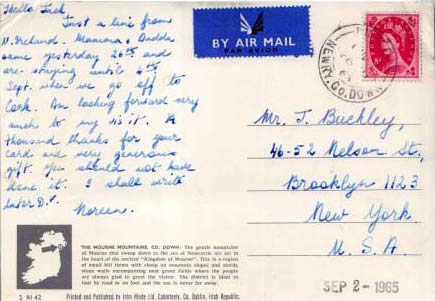 Hello Jack
Just a line from
N. Ireland. Mamma & Dadda
came yesterday 26th and
are staying until 4th
Sept. when we go off to
Cork. Am looking forward very
much to my visit. A
thousand thanks for your
card and very generous
gift. You should not have
done it. I shall write
later D.V.
Noreen.
BY AIR MAIL
PAR AVION
NEWRY, CO. DOWN
Mr. J. Buckley,
46-52 Nelson St.,
Brooklyn 1123
New York
U. S. A.
SEP 2 - 1965
THE MOURNE MOUNTAINS, CO. DOWN: The gentle mountains
of Mourne that sweep down to the sea at Newcastle are set in
the heart of the ancient "Kingdom of Mourne". This is a region
of small hill farms with sheep on mountain slopes and sturdy
stone walls encompassing neat green fields where the people
are always glad to greet the visitor. The district is ideal to
tour by road or on foot and the sea is never far away.
2 NI 42
Printed and Published by John Hinde Ltd. Cabinteely, Co. Dublin, Irish Republic.